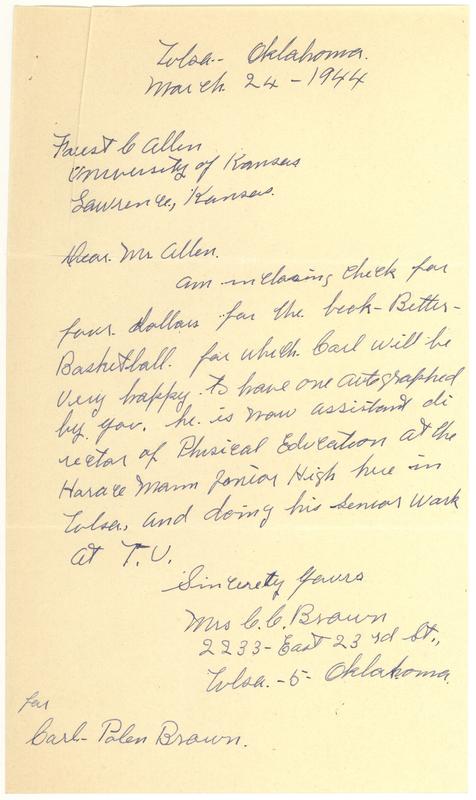 Tulsa - Oklahoma.
March 24 - 1944
Forest C Allen
University of Kansas
Lawrence, Kansas.
Dear Mr Allen.
am inclosing check for
four dollars for the book - Better -
Basketball. for which Carl will be
very happy to have one autographed
by you. he is now assistant di
rector of Physical Education at the
Horace Mann Junior High here in
Tulsa, and doing his senior work
at T.U.
Sincerely yours
Mrs C.C. Brown
2233 - East 23rd St.,
Tulsa. - 5 - Oklahoma.
for
Carl - Polen Brown.